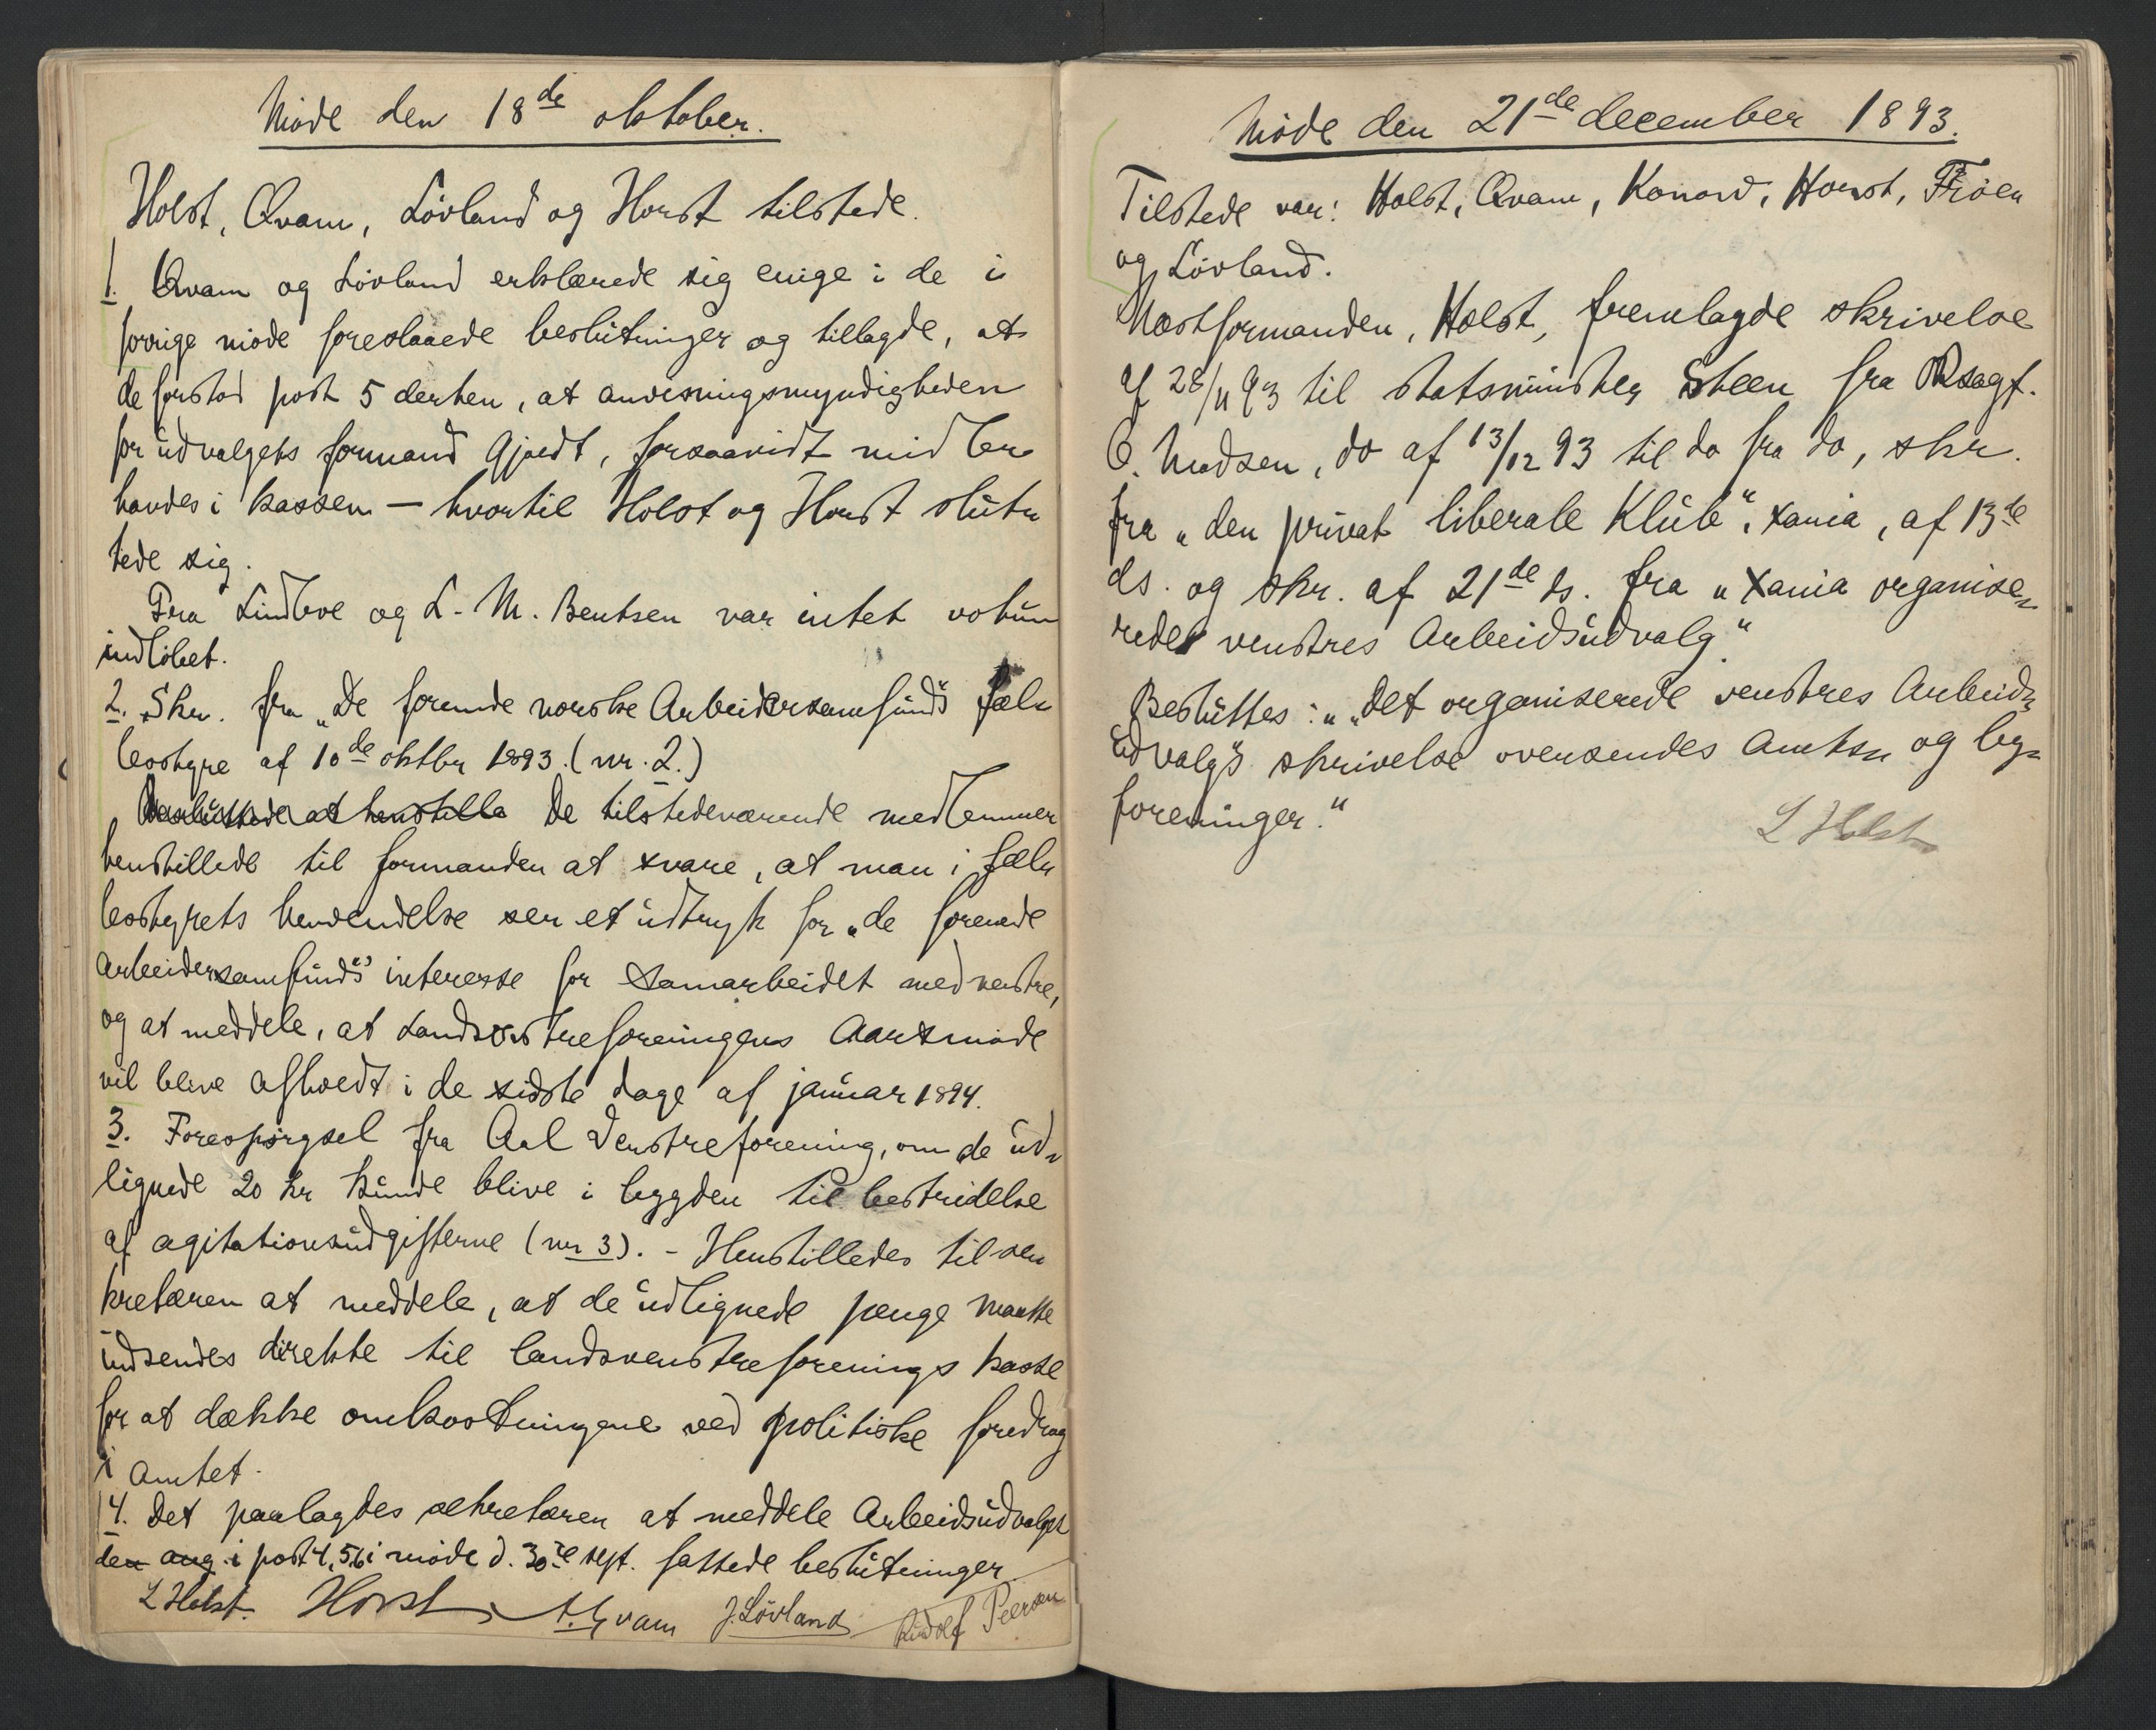 Møde den 18de oktober.
Holst, Qvam, Løvland og Horst tilstede.
1. Qvam og Løvland erklærede sig enige i de i
forrige møde foreslaaede beslutninger og tillagde, at
de forstod post 5 derhen, at anvisningsmyndigheden
for udvalgets formand gjaldt, forsaavidt midler
havdes i kassen — hvortil Holst og Horst slut„
tede sig.
Fra Lindboe og L. M. Bentsen var intet votum
indløbet.
2. Skr. fra „De forende norske Arbeidersamfund"s fæl„
lesstyre af 10de oktbr 1893. (nr. 2.)
Besluttede at henstille De tilstedeværende medlemmer
henstillede til formanden at svare, at man i fæl„
lesstyrets henvendelse ser et udtryk for „de forenede
arbeidersamfund"s interesse for samarbeidet med venstre,
og at meddele, at Landsvenstreforeningens Aarsmøde
vil blive afholdt i de sidste dage af januar 1894.
3. Forespørgsel fra Aal Venstreforening, om de ud„
lignede 20 kr kunde blive i bygden til bestridelse
af agitationsudgifterne (nr 3). - Henstilledes til se„
kretæren at meddele, at de udlignede penge maatte
indsendes direkte til landsvenstreforenings kasse
for at dække omkostningene ved politiske foredrag
i Amtet.
4. Det paalagdes sekretæren at meddele Arbeidsudvalget
den ang. i post 4, 5, 6 i møde d. 30te sept. fattede beslutninger.
L Holst. Horst A. Qvam J. Løvland Rudolf Peersen
Møde den 21de december 1893.
Tilstede var: Holst, Qvam, Konow, Horst, Frøen
og Løvland.
Næstformanden, Holst, fremlagde skrivelse
af 28/11 93 til statsminster Steen fra Rsagf.
O. Madsen, do af 13/12 93 til do fra do, skr.
fra „den privat liberale Klub", Xania, af 13de
ds. og skr. af 21de ds. fra „Xania organise„
rede venstres Arbeidsudvalg".
Besluttes: „„Det organiserede venstres Arbeids„
udvalg"s skrivelse oversendes Amts„ og by„
foreninger."
L Holst